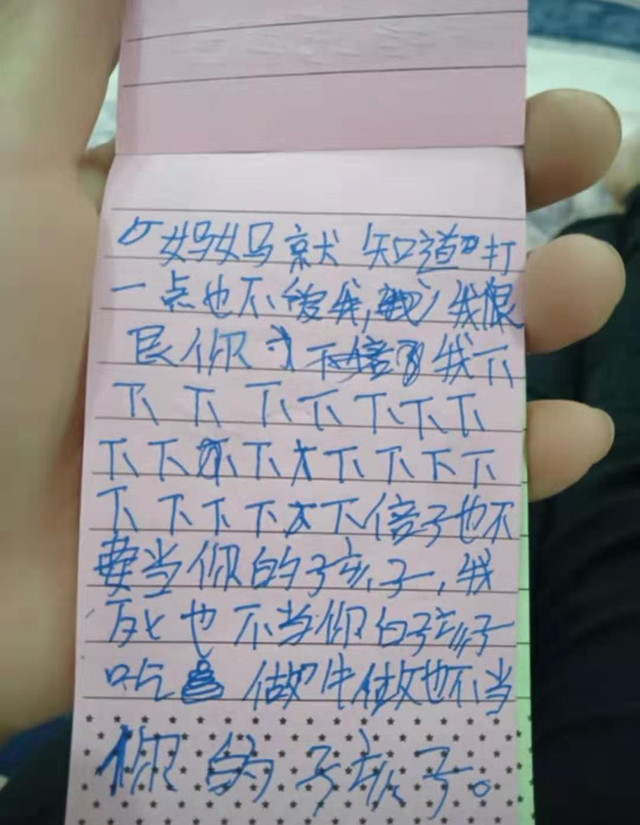 妈妈就知道打
一点也不爱我,我很
艮你不倍了我下
下下下下下下下
下下下下下下下下
下下下下下下倍子也不
要当你的孩子,我
死也不当你的孩子
吃 做牛做也不当
你的孩子。